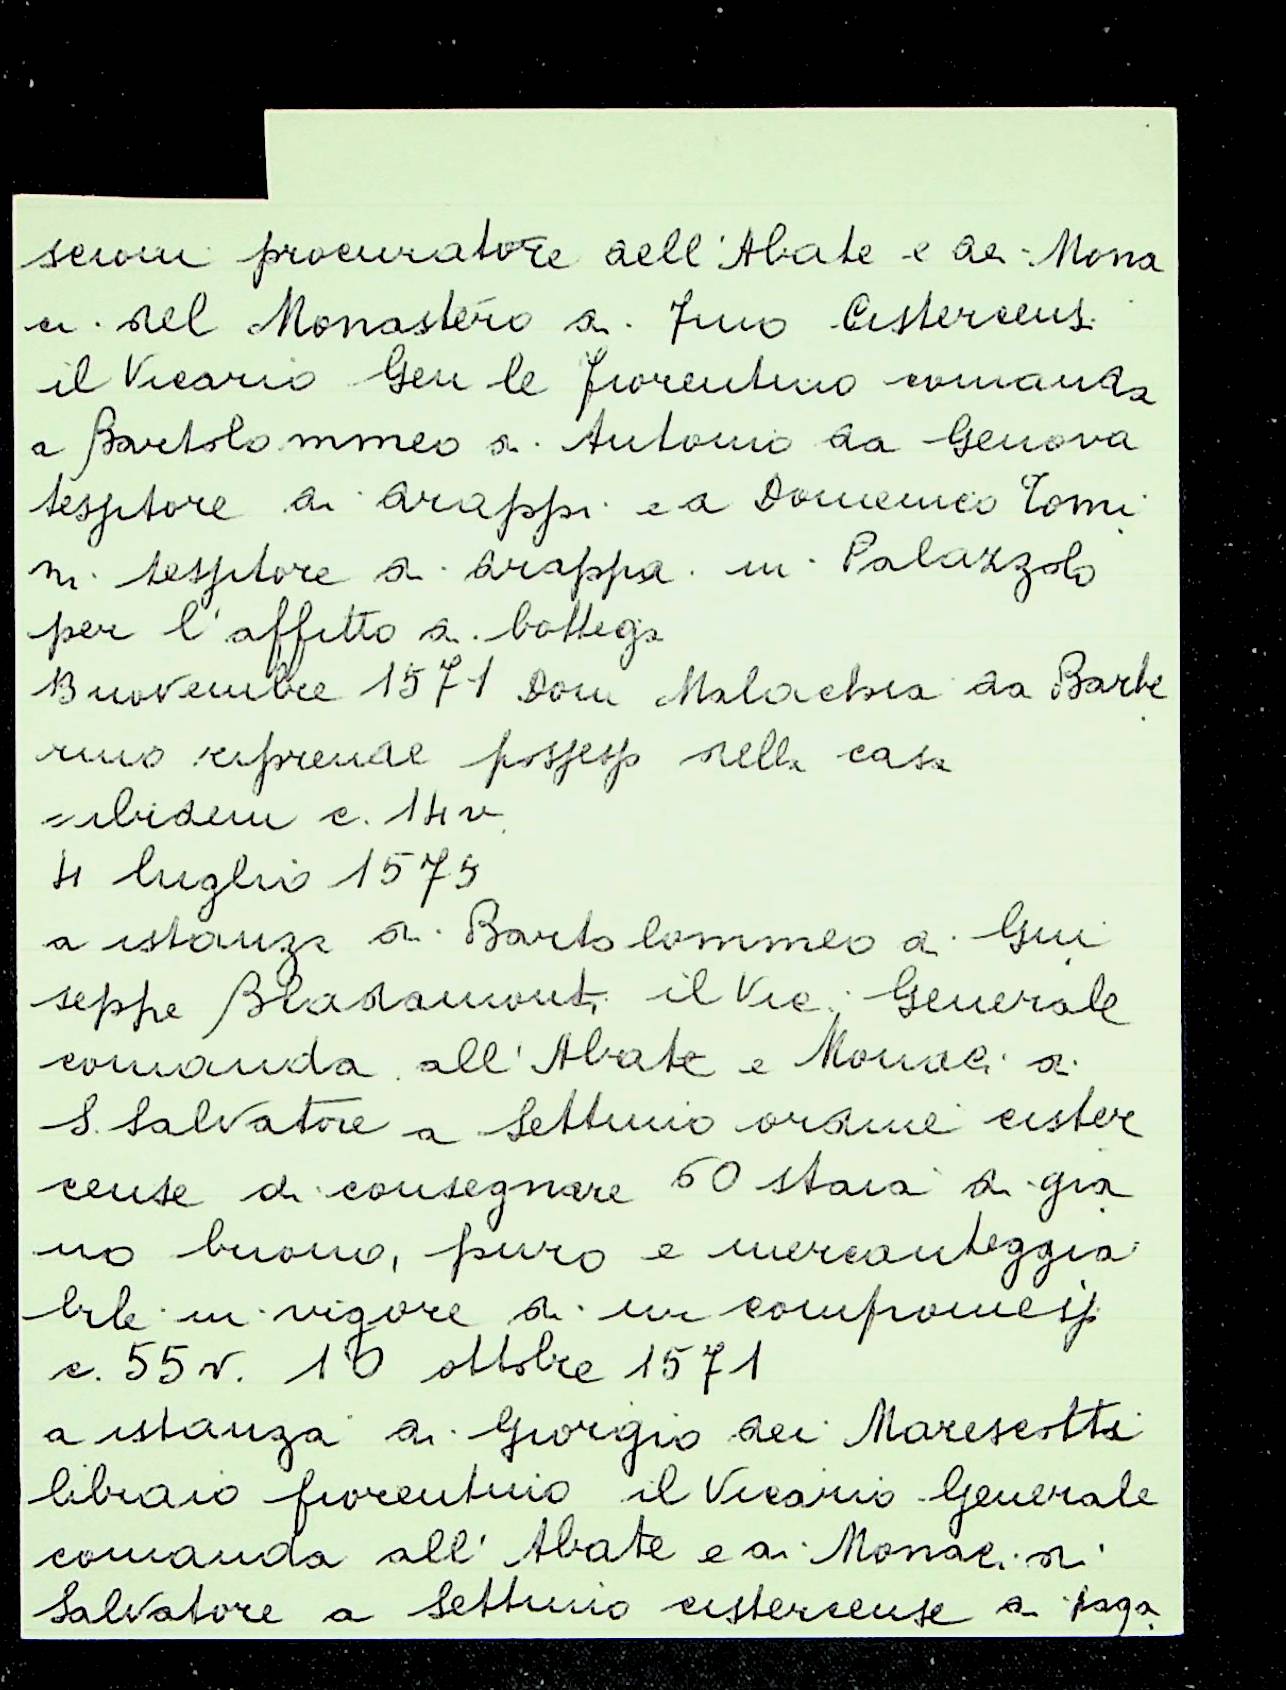 seroni procuratore dell'Abate e dei Mona
ci del Monastero di Cistercensi
il Vicario Gen le fiorentino comanda
a Bartolommeo di Antonio da Genova
tessitore di drappi e a Domenico Tomi
ni tessitore di drappi in Palazzolo
per l'affitto di bottega
13 novembre 1571 Dom Malachia da Barbe
rino riprende possesso della casa
ibidem c. 14v
4 luglio 1575
a istanza di Bartolommeo di Giu
seppe il Vic. Generale
comanda all'Abate e Monaci di
S. Salvatore a Settimo ordine cister
cense di consegnare 60 staia di gra
no buono, puro e mercanteggia
bile in vigore di un compromesso
c. 55v. 10 ottobre 1571
a istanza di Giorgio dei Marescotti
libraio fiorentino il Vicario Generale
comanda all'Abate e ai Monaci di
Salvatore a Settimo cistercense di paga